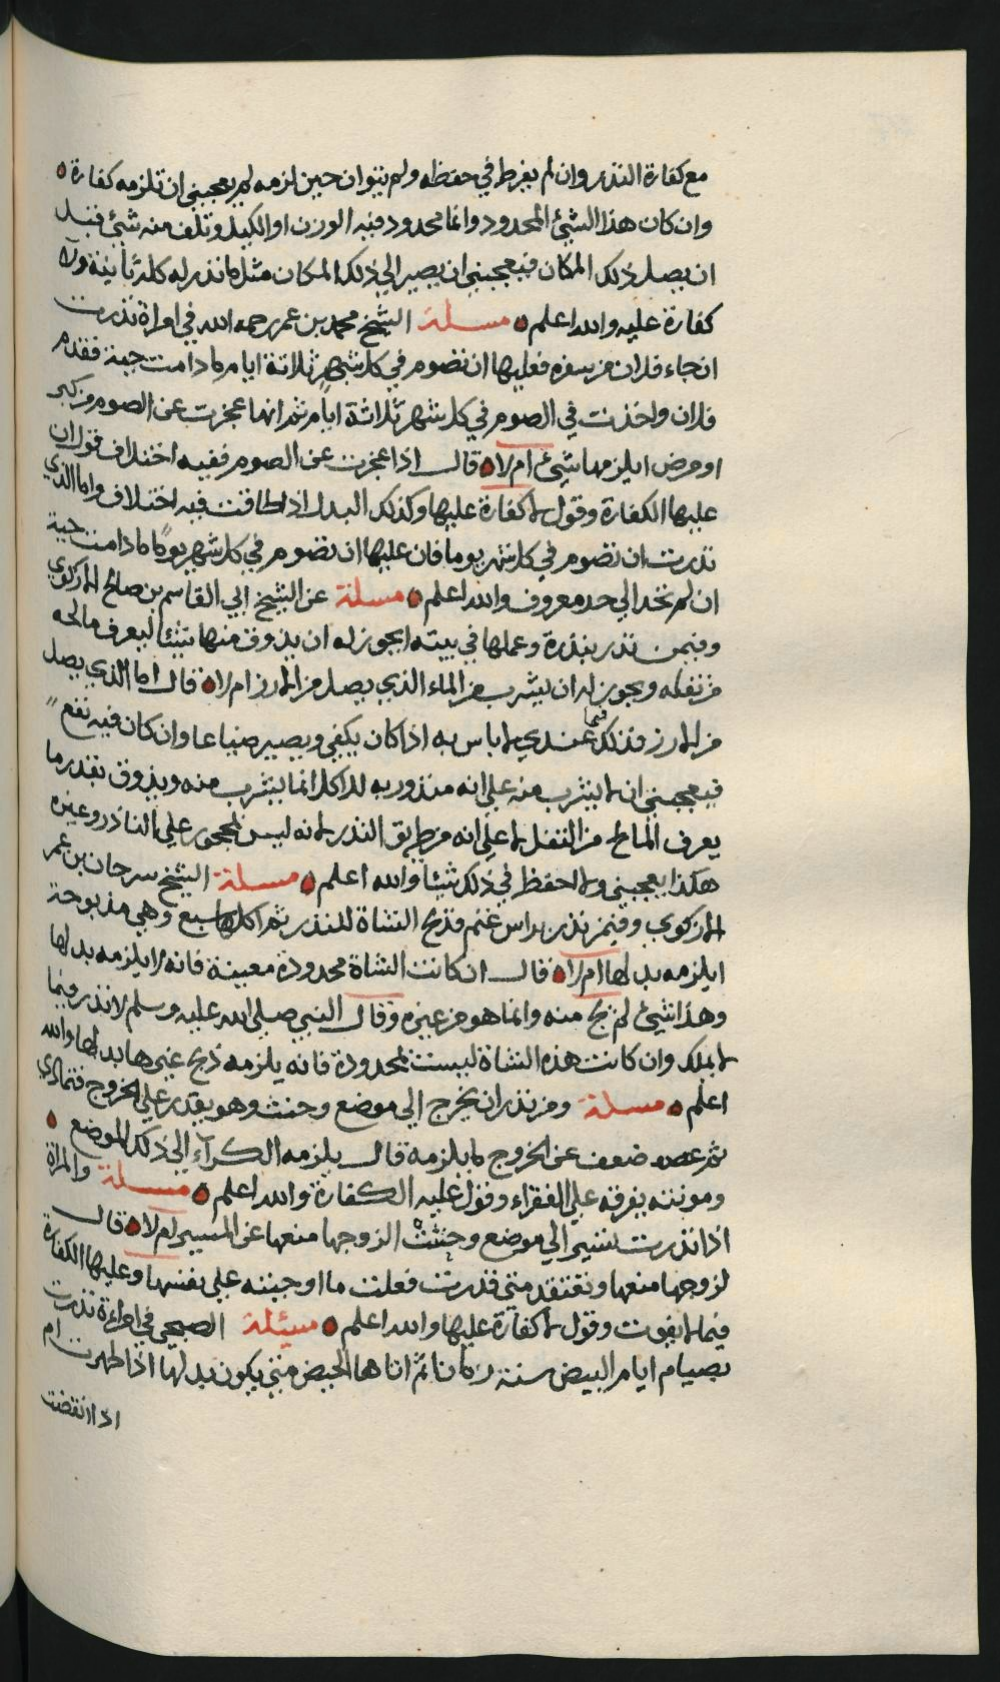 مع كفارة النذر وان لم يفرط في حفظه ولم ينوان حين لزمه لم يعجبني ان تلزمه كفارة
وان كان هذا الشيئ المحدود وانما محدود فيه الوزن او الكيل وتلف منه شيئ قبل
ان يصل ذلك المكان فيعجبني ان يصير الي ذلك المكان مثل ما نذر له كله ثانية ولا
كفارة عليه والله اعلم مسئلة الشيخ محمد بن عمر رحمه الله في امراة نذرت
ان جاء فلان من سفره فعليها ان تصوم في كل شهر ثلاثة ايام ما دامت حية فقدم
فلان واخذت في الصوم في كل شهر ثلاثة ايام ثم انها عجزت عن الصوم من كبر
او مرض ايلزمها شيئ ام لا قال اذا عجزت عن الصوم ففيه اختلاف قول ان
عليها الكفارة وقول لا كفارة عليها وكذلك البدل اذا طاقت فيه اختلاف واما الذي
نذرت ان تصوم في كل شهر يوما فان عليها ان تصوم في كل شهر يوما ما دامت حية
ان لم تحد الي حد معروف والله اعلم مسئلة عن الشيخ ابي القاسم بن صالح الازكوي
وفيمن نذر بنذرة وعملها في بيته ايجوز له ان يذوق منها شيئا ليعرف مالحه
من تفله ويجوز له ان يشرب من الماء الذي يصل من الارز ام لا قال اما الذي يصل
من الارز فذلك فيما عندي لا باس به اذا كان يكفي ويصير ضياعا وان كان فيه نفع
فيعجبني ان لا يشرب منه علي انه منذور به للاكل انما يشرب منه ويذوق بقدر ما
يعرف المالح من التفل لا علي انه من طريق النذر لانه ليس بمحجور علي الناذر وغيره
هكذا يعجبني ولا احفظ في ذلك شيئا والله اعلم مسئلة الشيخ سرحان بن عمر
الازكوي وفيمن نذر براس غنم فذبح الشاة للنذر ثم اكلها سبع وهي مذبوحة
ايلزمه بدلها ام لا قال ان كانت الشاة محدودة معينة فانه لا يلزمه بدلها
وهذا شيئ لم يج منه وانما هو من غيره وقال النبي صلي الله عليه وسلم لا نذر فيما
لا يملك وان كانت هذه الشاة ليست بمحدودة فانه يلزمه ذبح غيرها بدلها والله
اعلم مسئلة ومن نذر ان يخرج الي موضع وحنث وهو يقدر علي الخروج فتمادي
ثم ضعف عن الخروج ما يلزمه قال يلزمه الكرآء الي ذلك الموضع
ومونته يفرقه علي الفقراء وقول عليه الكفارة والله اعلم مسئلة والمراة
اذا نذرت تسير الي موضع وحنثت الزوجها منعها عن المسير ام لا قال
لزوجها منعها وتعتقد متي قدرت فعلت ما اوجبته علي نفسها وعليها الكفارة
فيما يفوت وقول لا كفارة عليها والله اعلم مسيئلة الصبحي في امراءة نذرت
بصيام ايام البيض سنة زمانا ثم اتاها الحيض متي يكون بدلها اذا طهرت ام
اذا انقضت